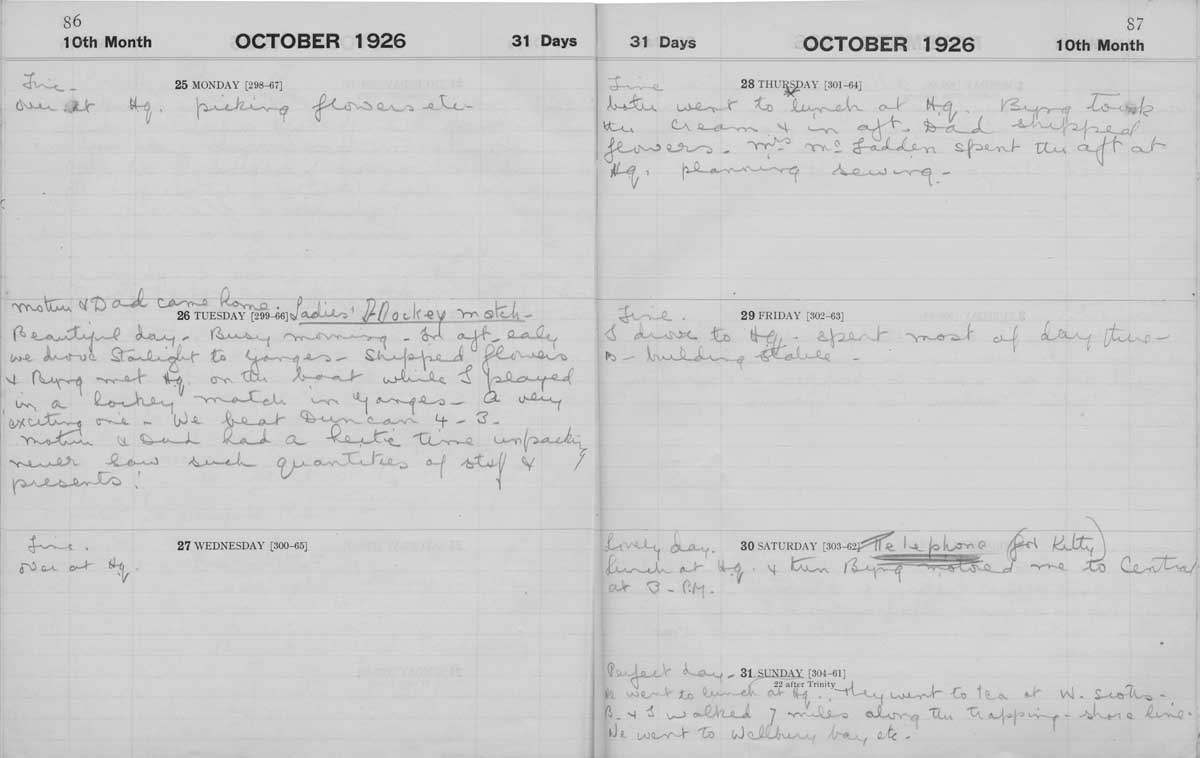 86
10th Month OCTOBER 1926 31 Days
Fine - 25 MONDAY [298-67]
over at Hq. picking flowers etc -
Mother & Dad came home.
26 TUESDAY [299-66] Ladies' Hockey match -
Beautiful day - Busy morning - In aft - early
we drove Starlight to Ganges - shipped flowers
& Byng met Hq. on the boat while I played
in a hockey match in Ganges - A very
exciting one - We beat Duncan 4 - 3 -
Mother & Dad had a hectic time unpacking
never saw such quantities of stuff &
presents!
Fine. 27 WEDNESDAY [300-65]
over at Hq.
87
31 Days OCTOBER 1926 10th Month
Fine 28 THURSDAY [301-64]
went to lunch at Hq. Byng took
the cream & in aft. Dad shipped
flowers - Mrs McFadden spent the aft at
Hq. planning sewing -
Fine. 29 FRIDAY [302-63]
I drove to Hq. spent most of day there -
B - building stable -
Lovely day. 30 SATURDAY [303-62] Telephone (for Kitty)
Lunch at Hq. & then Byng motored me to Central
at 3 - P.M.
Perfect day - 31 SUNDAY [304-61]
22 after Trinity
We went to lunch at Hq. They went to tea at W. Scotts -
B. & I walked 7 miles along the trapping - shore line -
We went to Wellbury bay etc -